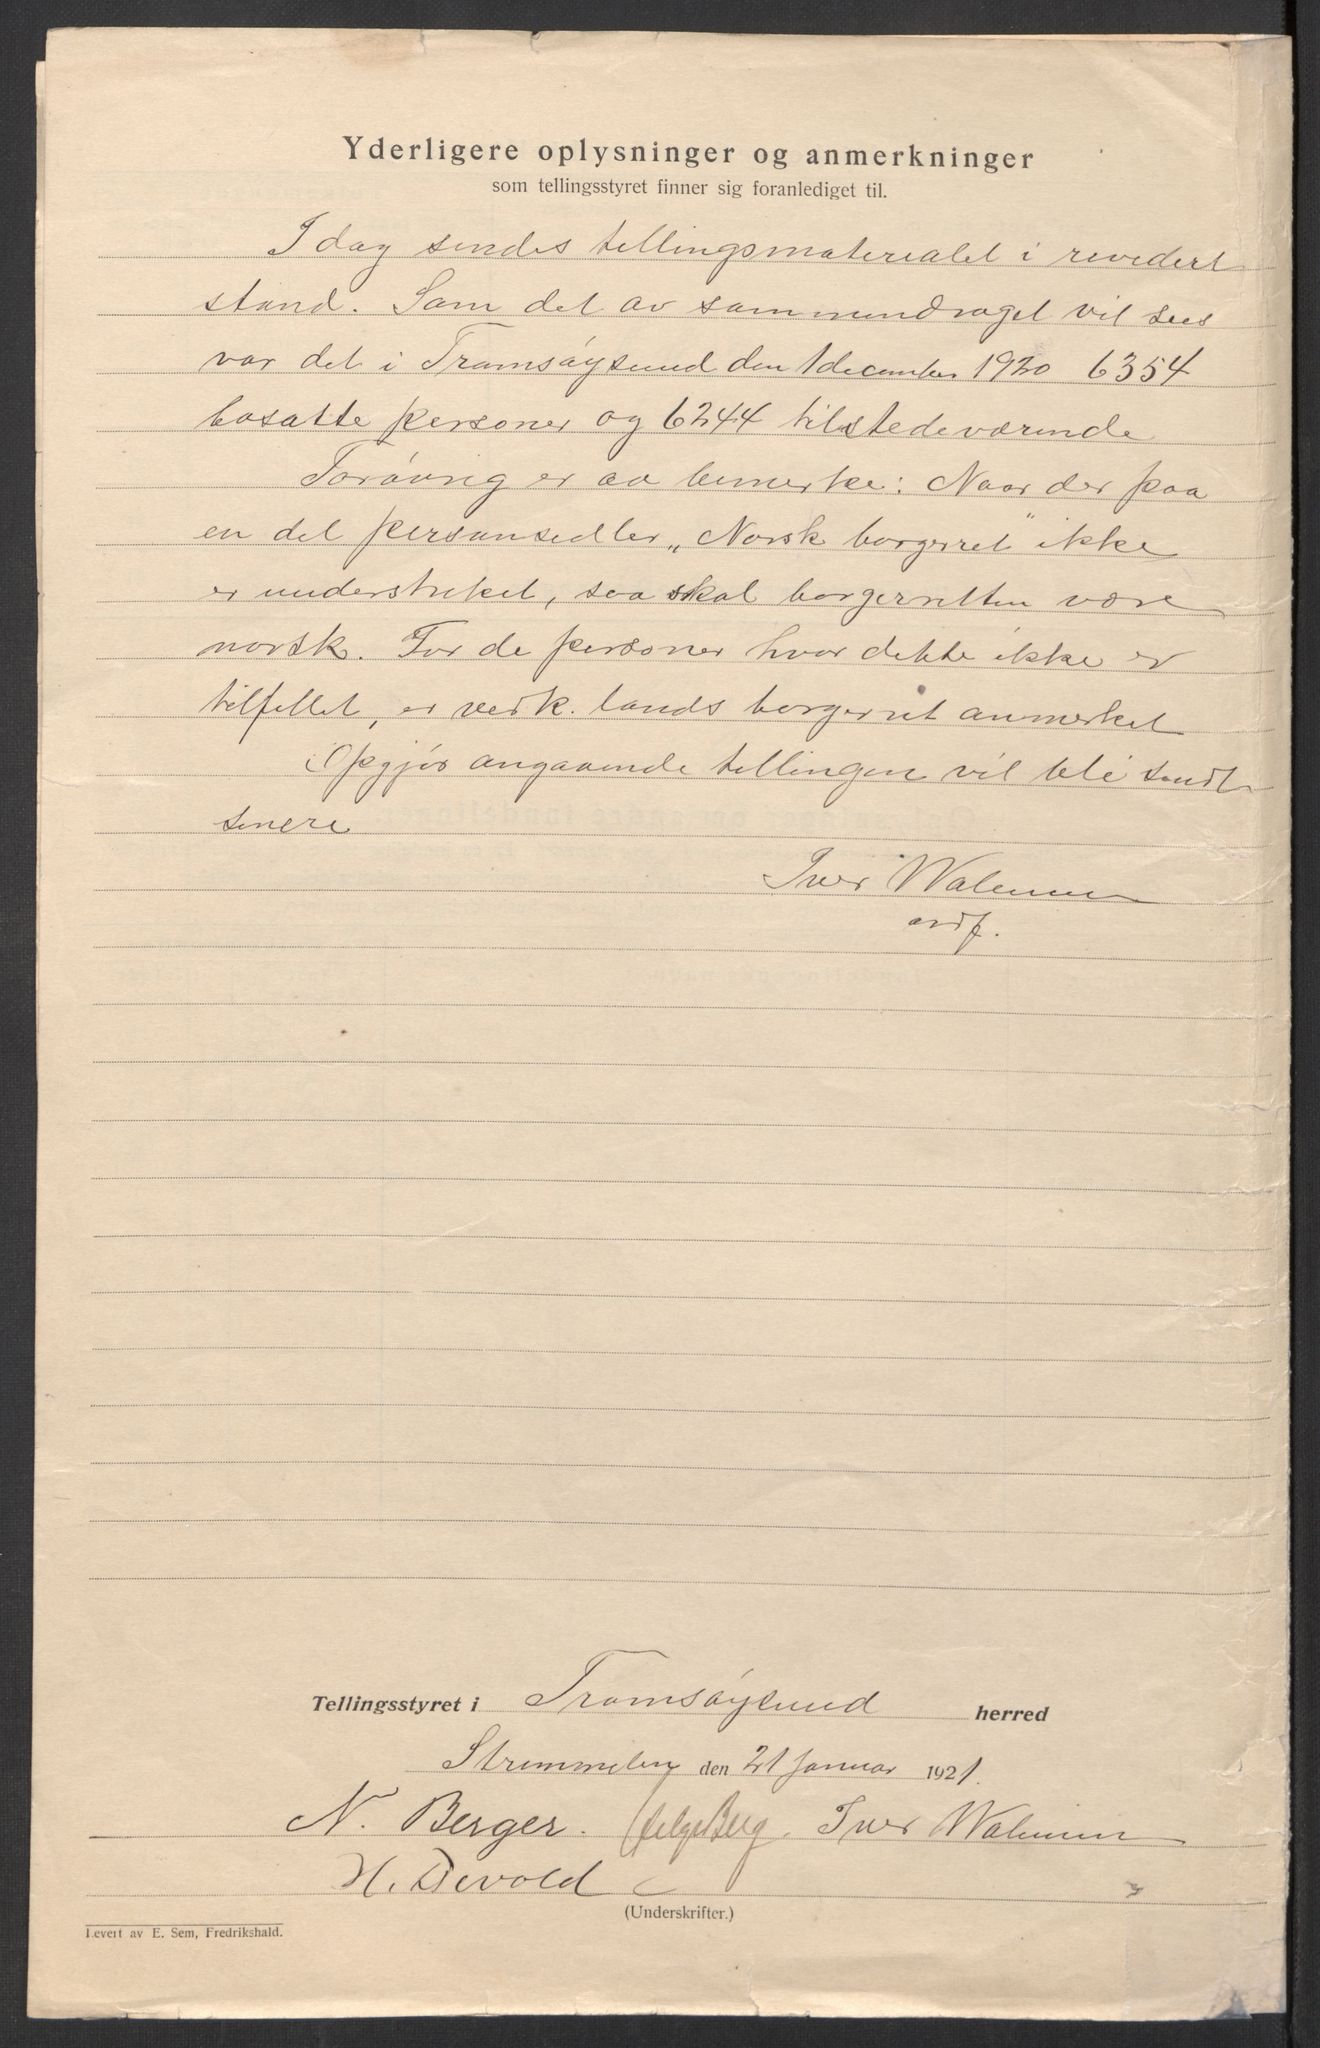 Yderligere oplysninger og anmerkninger
som tellingsstyret finner sig foranlediget til.
I dag sendes tellingsmaterialet i revedert
stand. Som det av sammendraget vil sees
var det i Tromsøysund den 1 december 1920 6354
bosatte personer og 6244 tilstedeværende
Forøvrig er aa bemerke: Naar der paa
en del personsedler „Norsk borgerret" ikke
er understreket, saa skal borgerretten være
norsk. For de personer hvor dette ikke er
tilfellet, er vedk. lands borgerret anmerket
Opgjør angaaende tellingen vil bli sendt
senere
Iver Walnum
ordf.
Tellingsstyret i Tromsøysund herred
den 21 januar 1921.
N. Berger. Helge Berg. Iver Walnum
H. Devold
(Underskrifter.)
Levert av E. Sem, Fredrikshald.